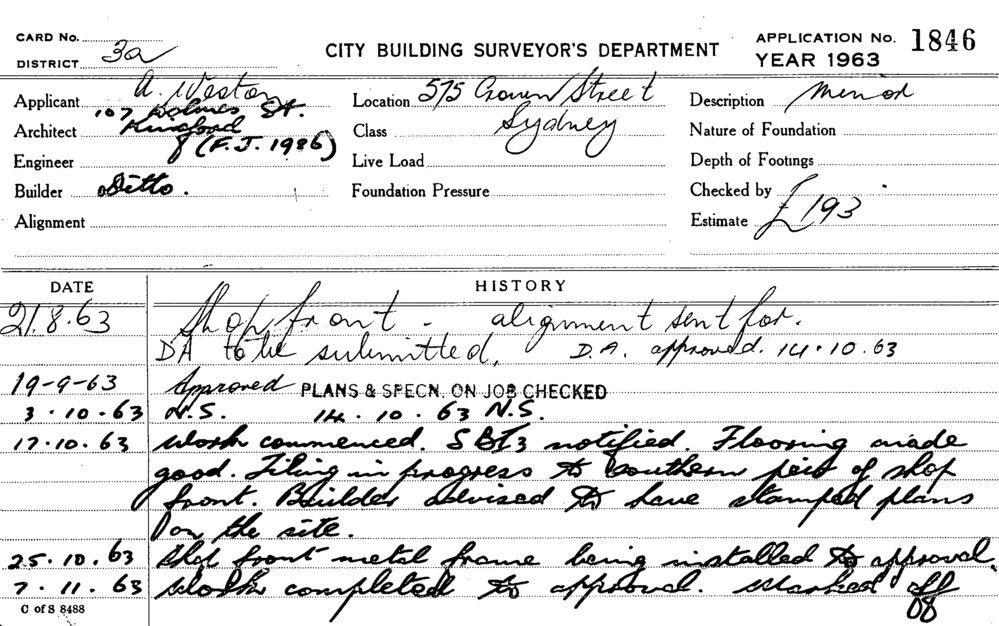 CARD No.
DISTRICT 3a
CITY BUILDING SURVEYOR'S DEPARTMENT
APPLICATION No. 1846
YEAR 1963
Applicant A. Weston
107 Holmes St.
Architect Kingsford
Engineer (F.J. 1986)
Builder Ditto.
Alignment
Location 575 Crown Street
Class Sydney
Live Load
Foundation Pressure
Description Minor
Nature of Foundation
Depth of Footings
Checked by
Estimate £193
DATE HISTORY
21.8.63 Shop front - alignment sent for.
DA to be submitted. D.A. approved. 14.10.63
19-9-63 Approved PLANS & SPECN. ON JOB CHECKED
3.10.63 N.S. 14.10.63 N.S.
17.10.63 Work commenced. SBI3 notified. Flooring made
good. Tiling in progress to southern pier of shop
front. Builder advised to have stamped plans
on the site.
25.10.63 Shop front metal frame being installed to approval.
7.11.63 Work completed to approval. Marked off
C of S 8488